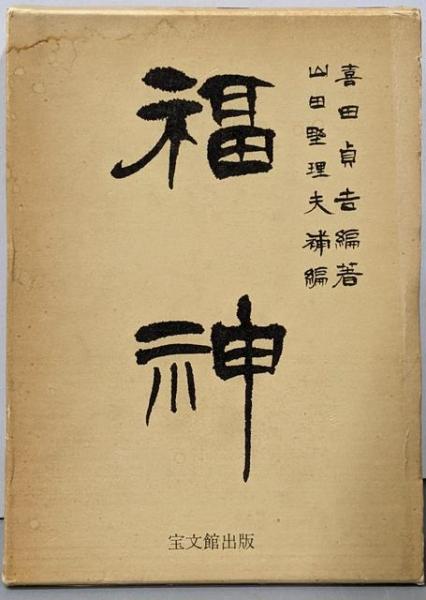 喜田貞吉編著
山田野理夫補編
福神
宝文館出版